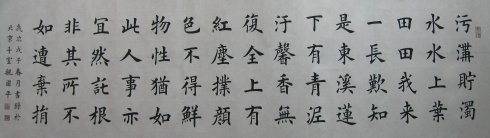 污溝貯濁
水水上葉
田田我來
一長歎知
是東溪蓮
下有青泥
汙馨香無
復全上有
紅塵撲顔
色不得鮮
物性猶如
此人事亦
宜然託根
非其所不
如遭棄捐
歲次戊子春月書錄於
北京斗室魏國平